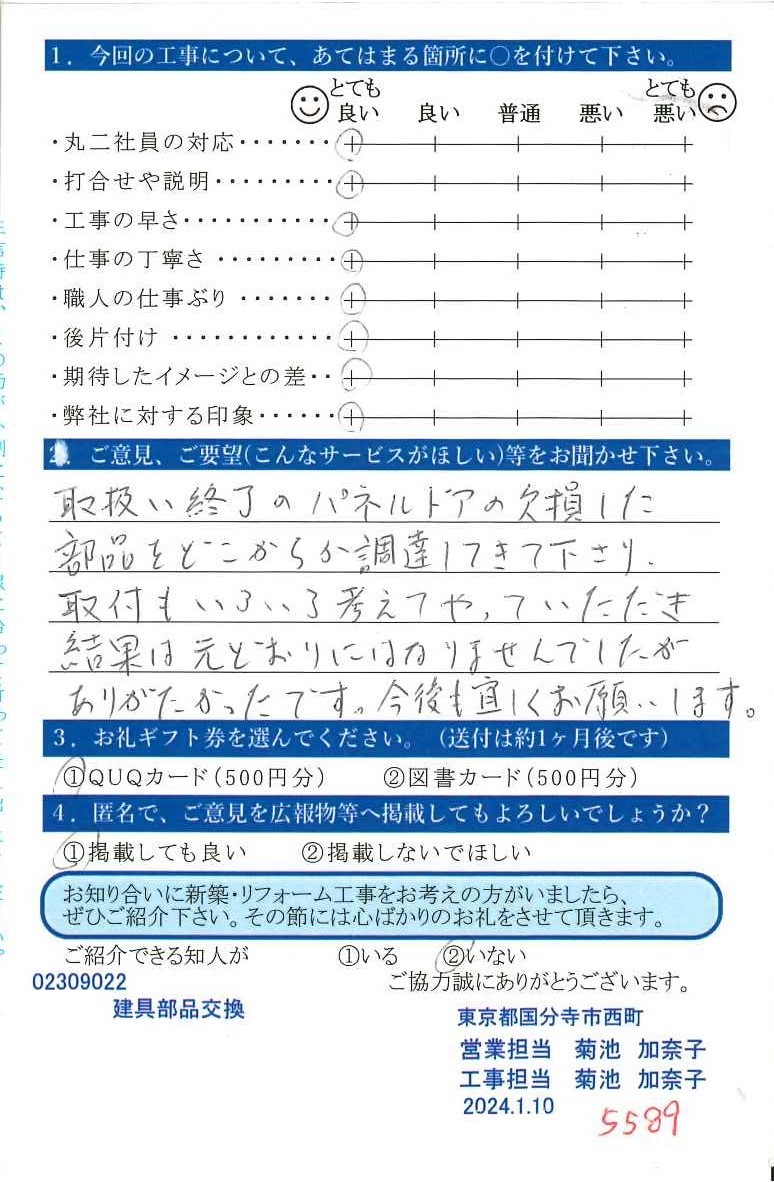 1．今回の工事について、あてはまる箇所に○を付けて下さい。
とても良い 良い 普通 悪い とても悪い
・丸二社員の対応・・・・・・・
・打合せや説明・・・・・・・・・
・工事の早さ・・・・・・・・・・・
・仕事の丁寧さ・・・・・・・・・
・職人の仕事ぶり・・・・・・・
・後片付け・・・・・・・・・・・・
・期待したイメージとの差・・
・弊社に対する印象・・・・・・
2．ご意見、ご要望(こんなサービスがほしい)等をお聞かせ下さい。
取扱い終了のパネルドアの欠損した
部品をどこからか調達してきて下さり、
取付もいろいろ考えてやっていただき
結果は元どおりにはなりませんでしたが
ありがたかったです。今後も宜しくお願いします。
3．お礼ギフト券を選んでください。（送付は約1ヶ月後です）
①QUQカード（500円分） ②図書カード（500円分）
4．匿名で、ご意見を広報物等へ掲載してもよろしいでしょうか？
①掲載しても良い ②掲載しないでほしい
お知り合いに新築・リフォーム工事をお考えの方がいましたら、
ぜひご紹介下さい。その節には心ばかりのお礼をさせて頂きます。
ご紹介できる知人が ①いる ②いない
ご協力誠にありがとうございます。
02309022
建具部品交換
東京都国分寺市西町
営業担当 菊池 加奈子
工事担当 菊池 加奈子
2024.1.10
5589